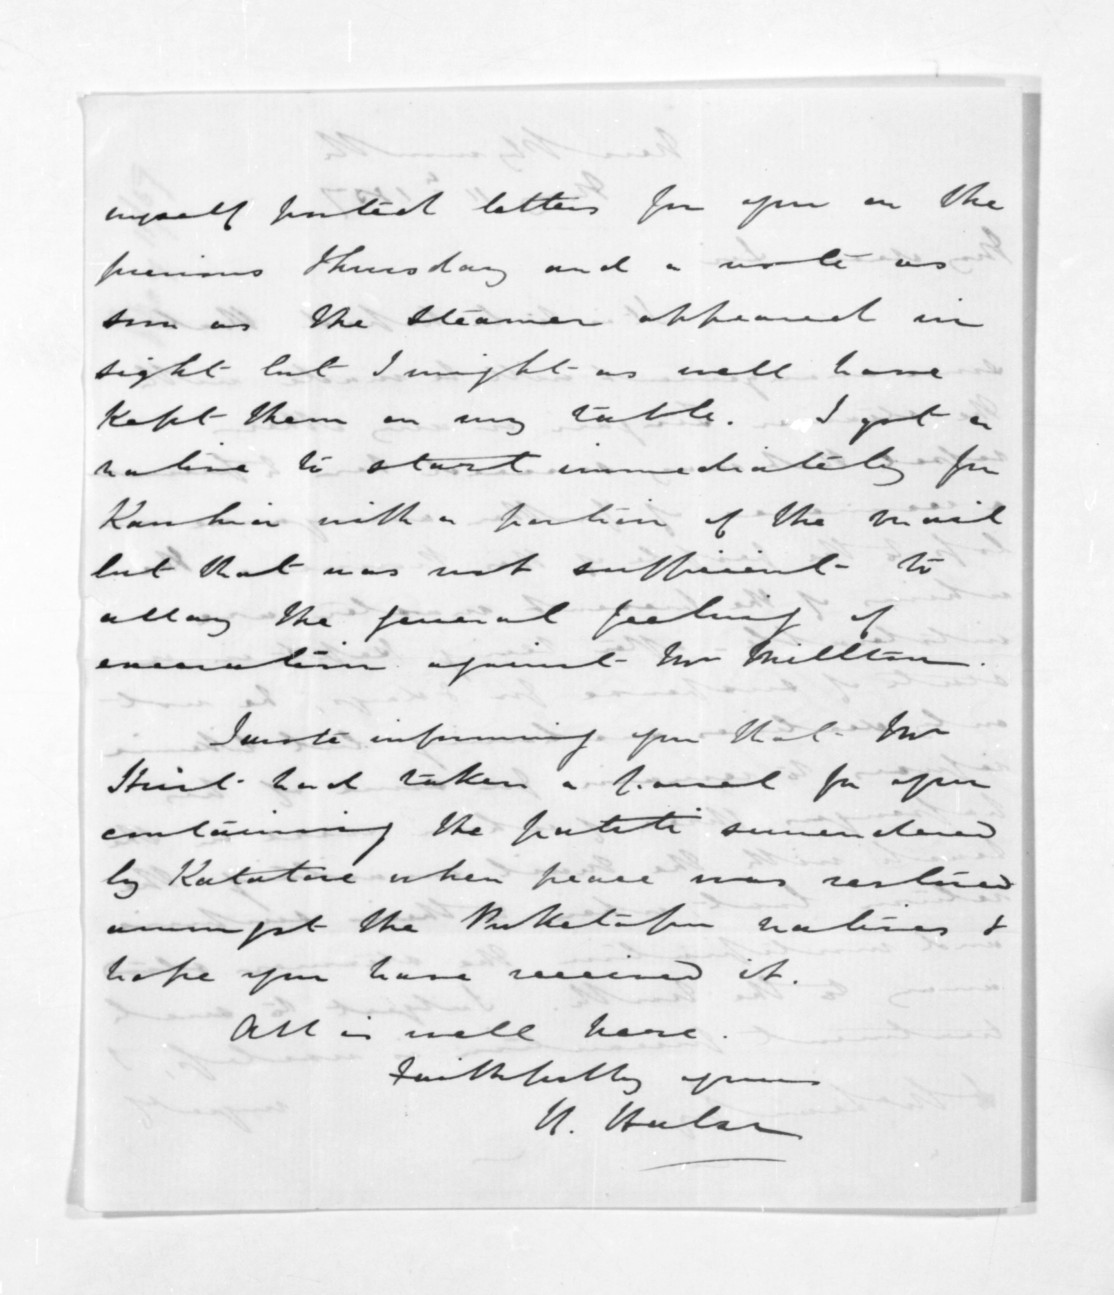 myself posted letters for you on the
previous Thursday and a note as
soon as the steamer appeared in
sight but I might as well have
kept them on my table. I got a
native to start immediately for
Kawhia with a portion of the mail
but that was not sufficient to
allay the general feeling of
execration against Mr
I wrote informing you that Mr
Hirst had taken a parcel for you
containing the patiti surrendered
by Katatore when peace was restored
amongst the Puketapu natives &
hope you have received it.
All is well here.
Faithfully yours
H. Halse